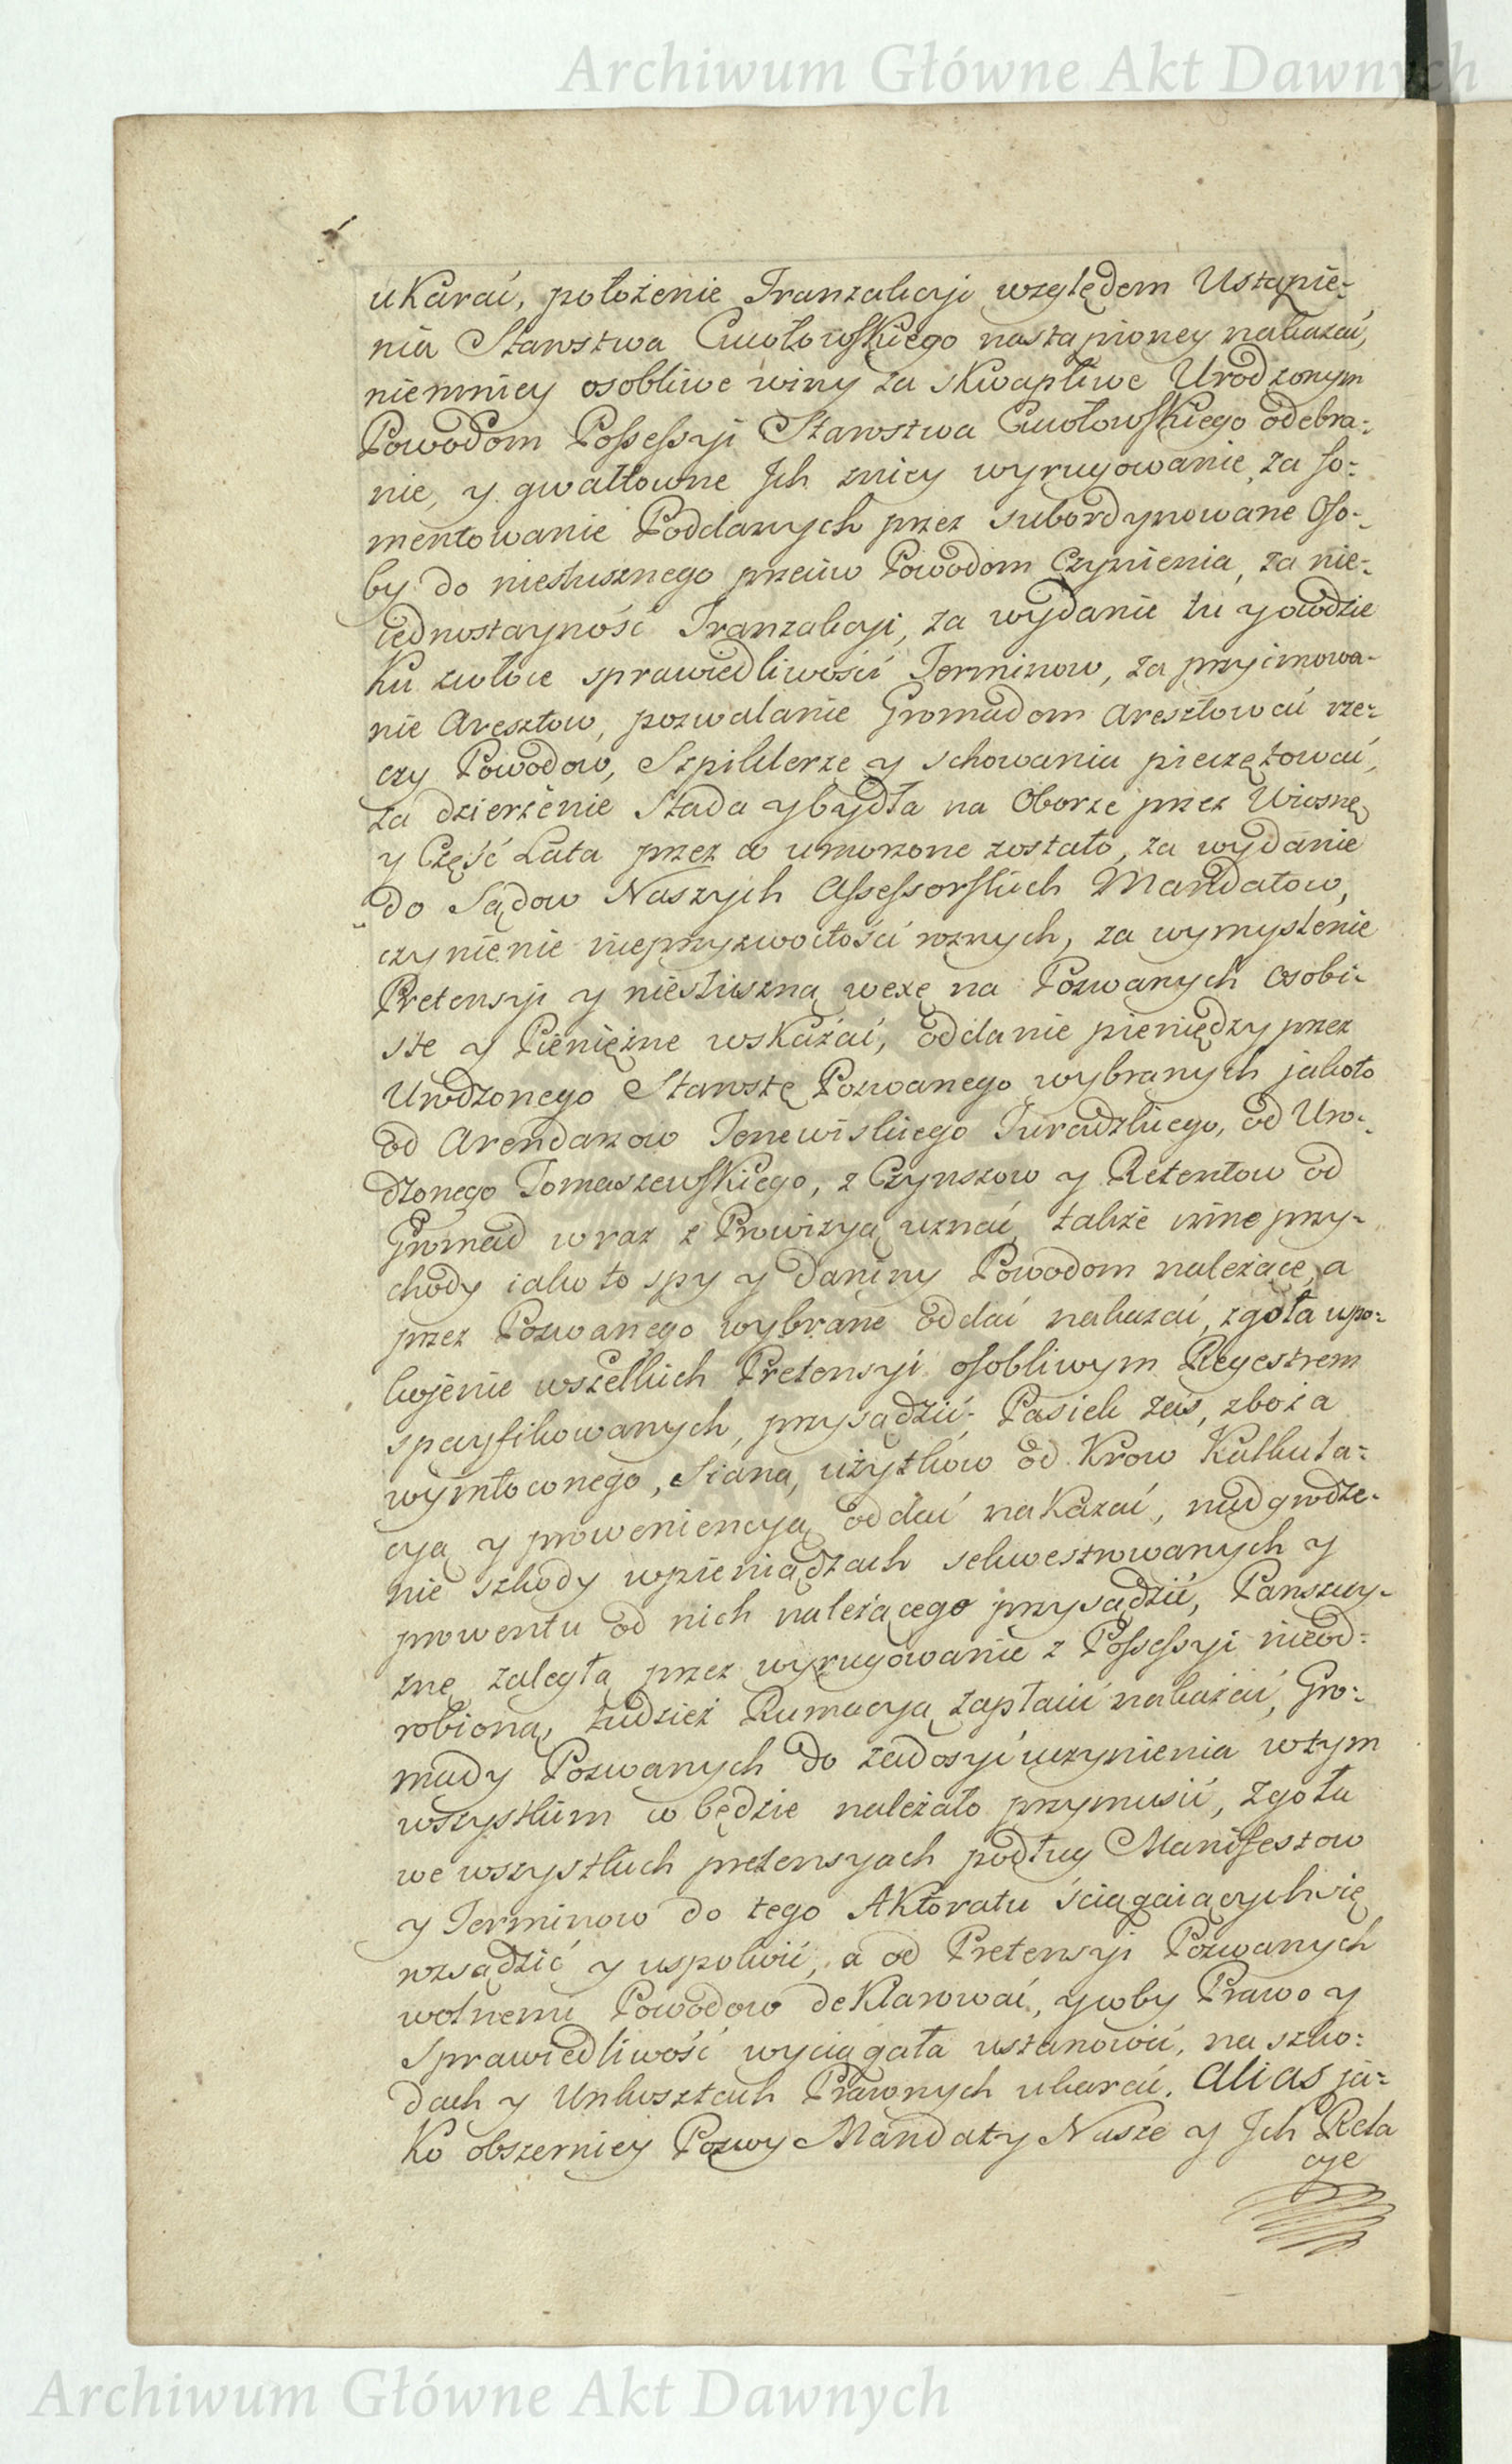 Archiwum Główne Akt Dawnych
ukarać, położenie Tranzakcyi względem Ustąpie-
nia Starostwa Cwołowskiego nastąpioney nakazać,
niemniey osobliwe winy za skwapliwe Urodzonym
Powodom Possessyi Starostwa Cwołowskiego odebra-
nie, y gwałtowne Jch zniey wyrugowanie, za fo-
mentowanie Poddanych przez subordynowane Oso-
by do niesłusznego przeciw Powodom Czynienia, za nie-
iednostayność Tranzakcyi, za wydanie tu y owdzie
Ku zwłoce sprawiedliwości Terminow, za przyimowa-
nie Aresztow, pozwalanie Gromadom Aresztować rze-
czy Powodow, Szpiklerze y schowania pieczętować,
za dzierżenie Stada y bydła na Oborze przez Wiosnę
y Część Lata przez co umorzone zostało, za wydanie
do Sądow Naszych Assessorskich Mandatow,
czynienie nieprzyzwoitości roznych, za wymyslenie
Pretensyi y niesłuszną wexę na Pozwanych osobi-
ste y Pieniężne wskazać, oddanie pieniędzy przez
Urodzonego Starostę Pozwanego wybranych jakoto
od Arendarzow Tenewiskiego Turadzkiego, od Uro-
dzonego Tomaszewskiego, z Czynszow y Retentow od
Gromad wraz z Prowizyą uznać, także inne przy-
chody iako to spy y Daniny Powodom należące, a
przez Pozwanego wybrane oddać nakazać, zgoła uspo-
kojenie wszelkich Pretensyi osobliwym Regestrem
specyfikowanych, przysądzić. Pasiek zaś, zboża
wymłoconego, Siana, użytkow od Krow Kalkula-
cyą y proweniencyą oddać nakazać, nadgrodze-
nie szkody wpieniądzach sekwestrowanych y
prowentu od nich należącego przysądzić, Panszczy-
znę zaległą przez wyrugowanie z Possessyi nieod-
robioną, tudzież Rumacyą zapłacić nakazać, Gro-
mady Pozwanych do zadosyć uczynienia wtym
wszystkim co będzie należało przymusić, zgoła
we wszystkich pretensyach podług Manifestow
y Terminow do tego Aktoratu ściągaiących się
rozsądzić y uspokoić, a od Pretensyi Pozwanych
wolnemi Powodow deklarować, y coby Prawo y
Sprawiedliwość wyciągała ustanowić, na szko-
dach y Unkosztach Prawnych ukarać. Alias ja-
Ko obszerniey Pozwy Mandaty Nasze y Jch Rela
cye
Archiwum Główne Akt Dawnych